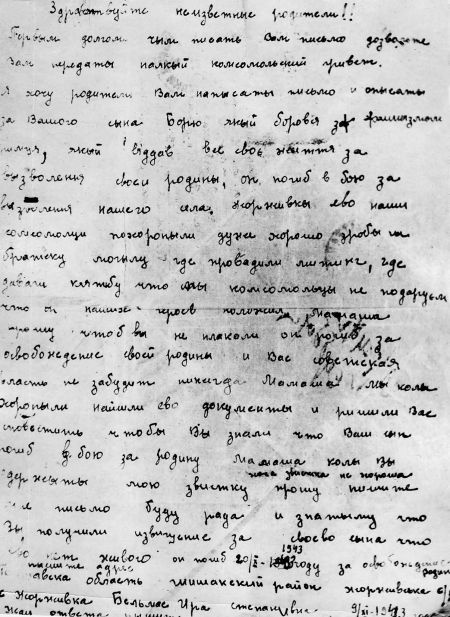 Здравствуйте неизвестные родители!!
Первым долгом чым писать Вам письмо дозвольте
Вам передаты палкый комсомольский привет.
Я хочу родители Вам написаты письмо и описаты
за Вашого сына Борю якый боровся за фашизмом
якый віддав все своє життя за
вызволення своєи родины, он погиб в бою за
вызволення нашего села Жорнивкы ево наши
комсомолци похоронылы дуже хорошо зробылы
братску могылу где провадили митинг, где
давалы клятьбу что мы комсомольцы не подаруем
что он наших кров Мамаша
прошу чтоб вы не плакали он погиб за
освобождение своей родины и Вас советская
власть не забудит никогда Мамаша мы колы
хоронылы найшли ево документы и ришили Вас
сповистить чтобы Вы знали что Ваш сын
погиб в бою за родину Мамаша колы Вы
хоча звистка не хороша
одержыты мою звистку прошу пишите
мне письмо буду рада и знатыму что
Вы получили извищение за своєво сына что
ево нет живого он погиб 20/IX-1943 году за освобождение родины
пишите адрес
область шишакский район жорнивська с/р
с Жорнивка Бельмас Ира степановна 9/XI-1943
Жди ответа